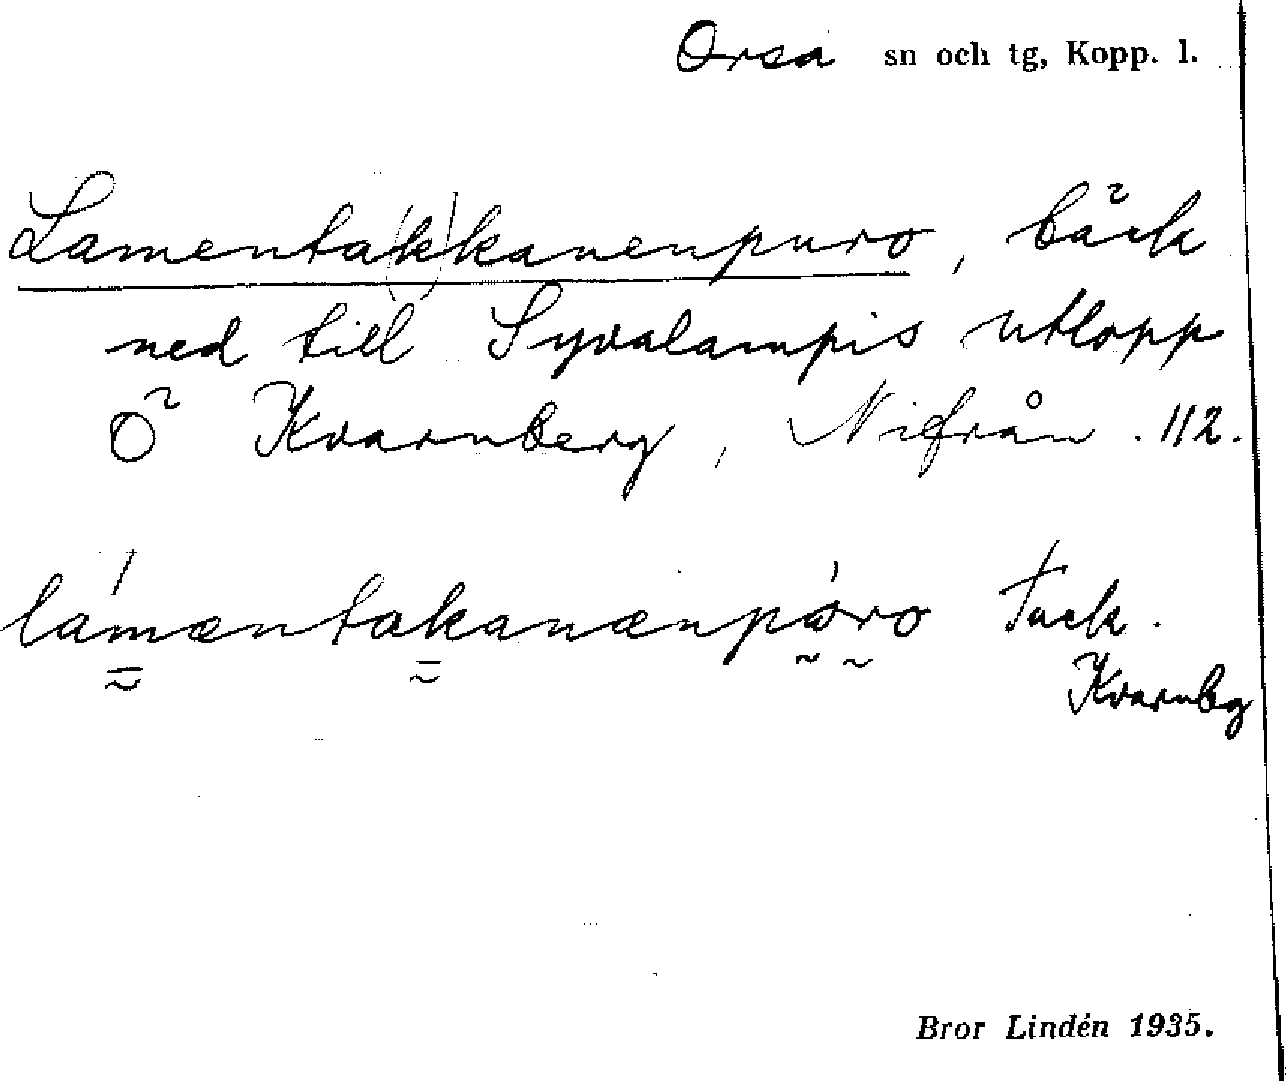 Orsa sn och tg, Kopp. l.
Lamentak(k)kanenpuro, bäck
ned till Syvalampis utlopp
Ö Kvarnberg, Nifrån. 112.
lámæntakanænpåro Tack.
Kvarnbg
Bror Lindén 1935.